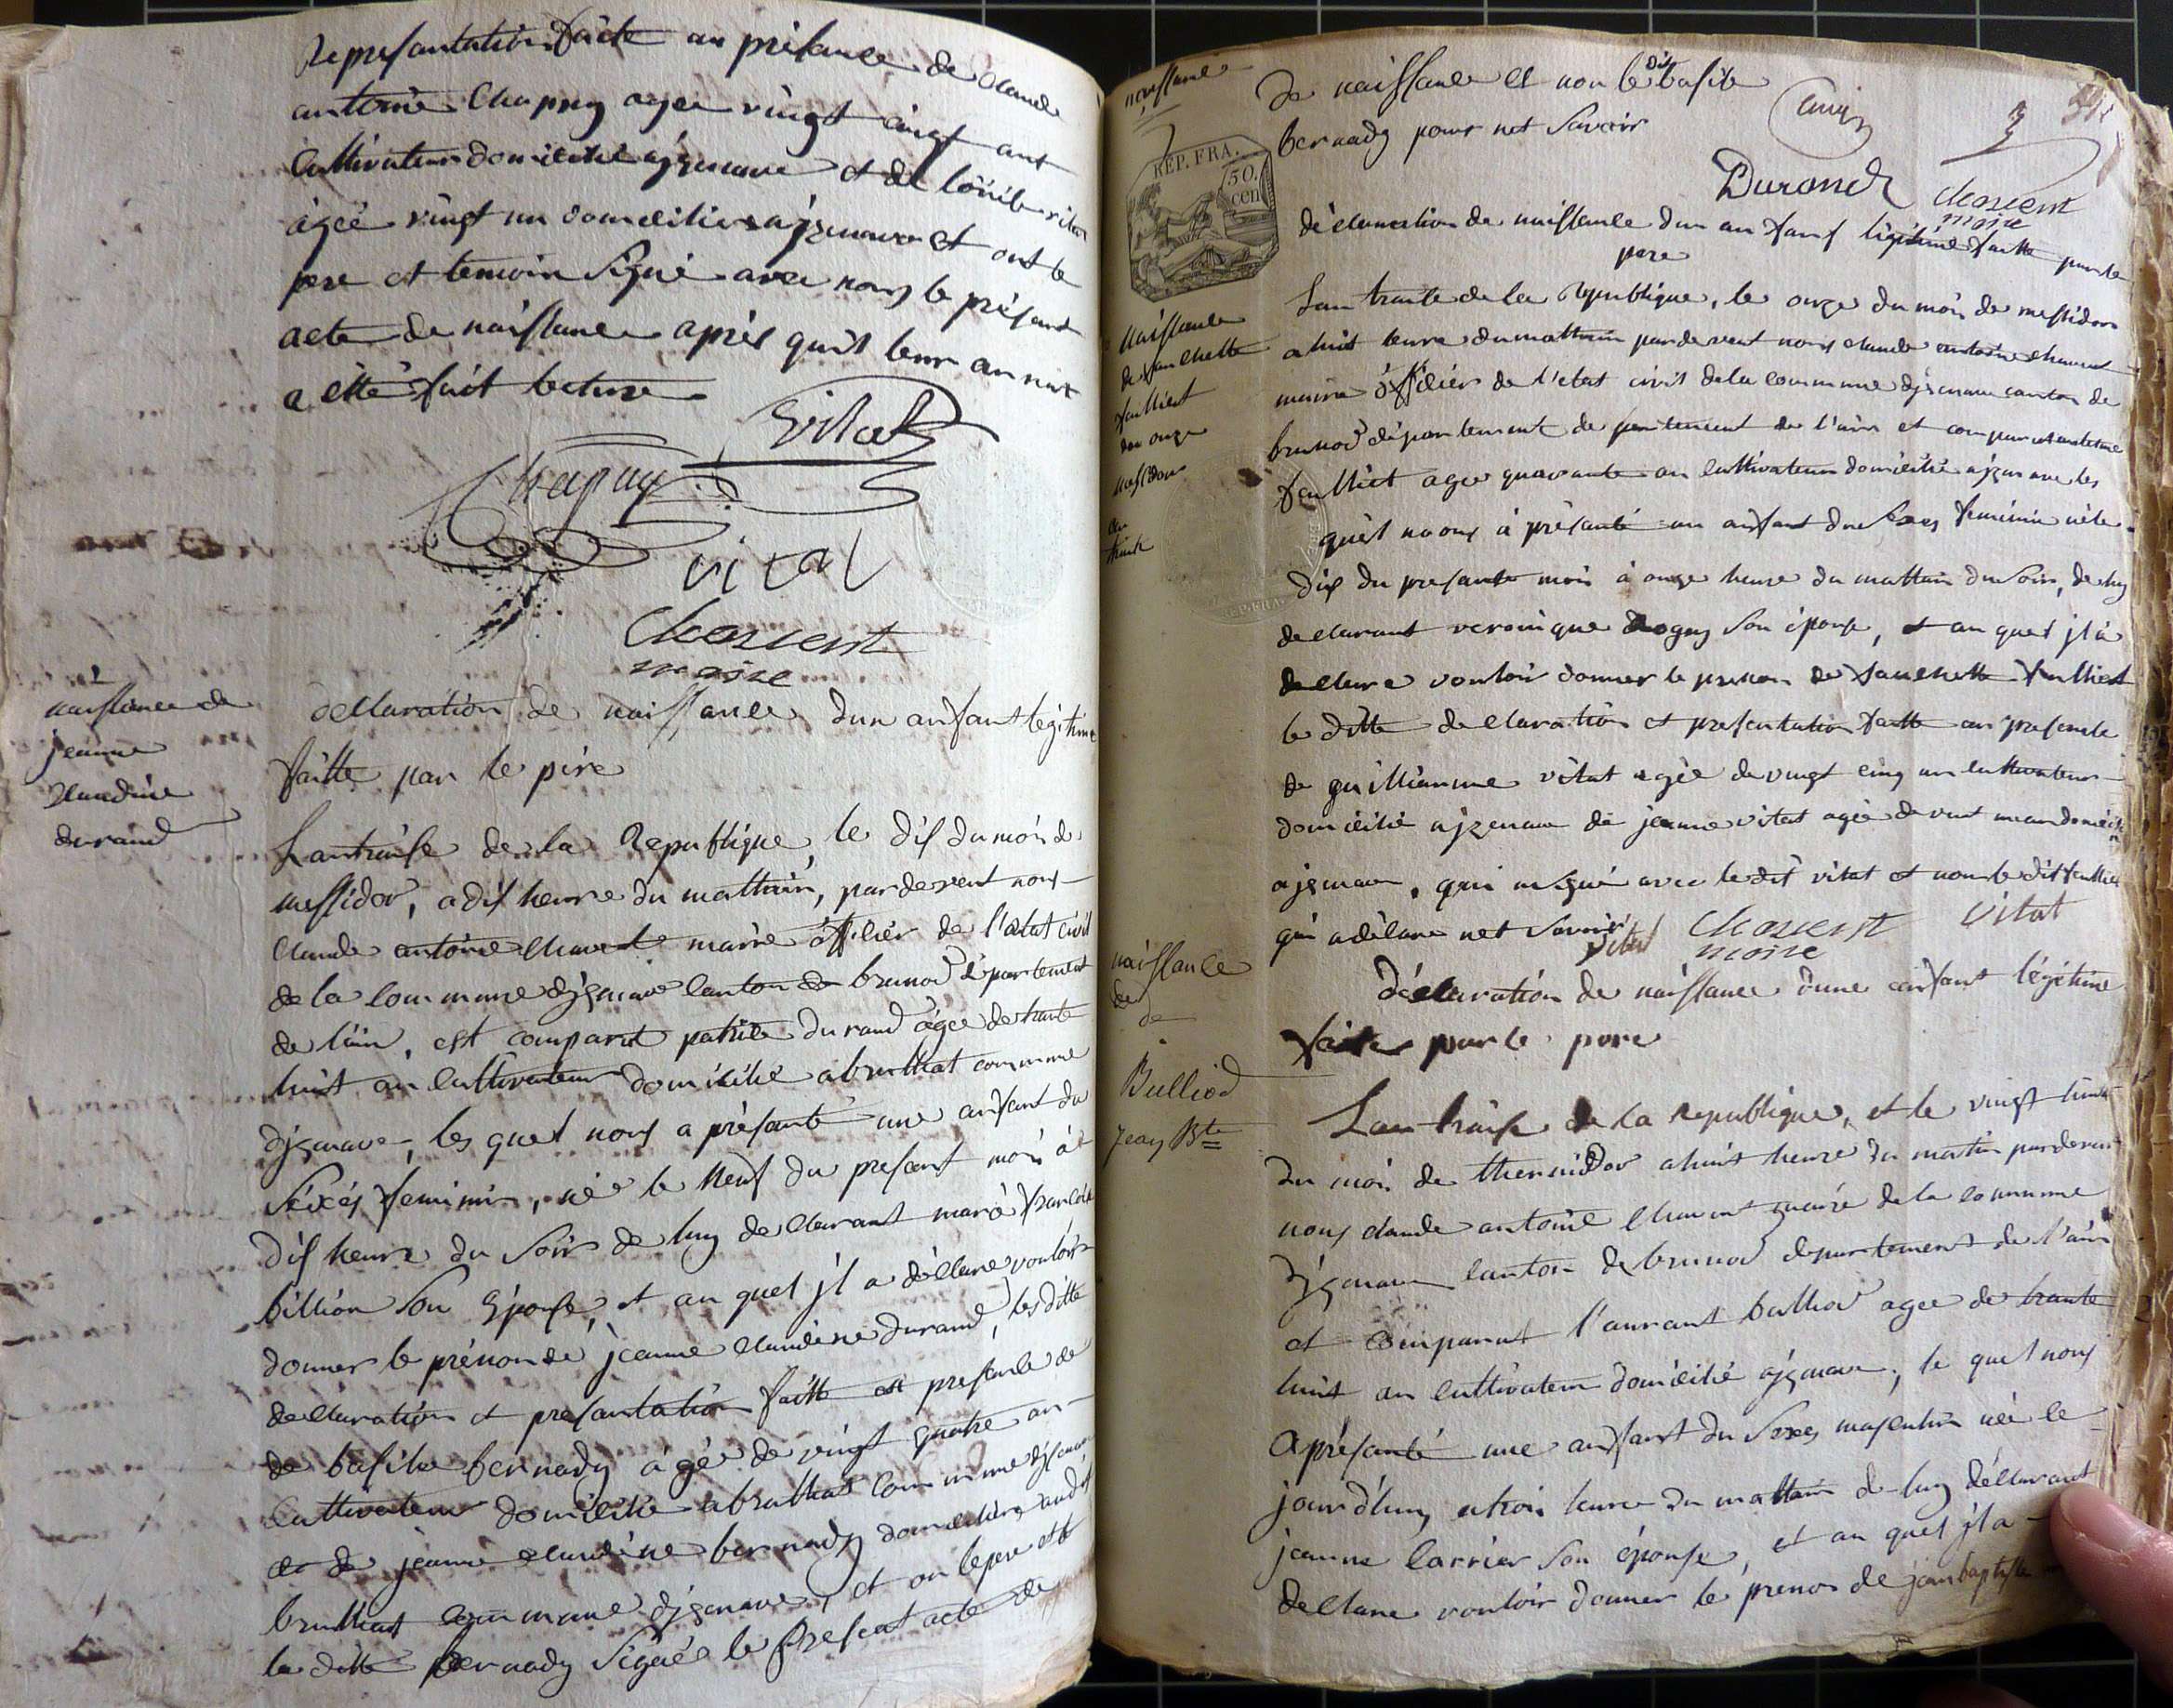 Represantation faite an présance de claude
antoine Chapuy agee vingt cinqt ant
Cultivateur domicilié ajzenave et de loüise vital
âgée vingt un domicilies ajzenave et ont le
pere et temoin Signé avec nous le présant
acte de naissance après quil leur an nat
a etté fait lecture
Vital
Chapuy
vital
Chavent
maire
naissance de
jeanne
Claudine
durand
declaration de naissance dun anfant legitime
faitte par le père
Lantraise de la Republique, le dis du mois de
messidor, a dis heure du mattain, pardevent nous
claude antoine chavent maire officiér de l'etat civil
de la commune djzenave canton de brenod département
de l'ain, est comparut patrice durand âgée de trante
huit an cultivateur domicilié a brulliat commune
djzenave, les quel nous a présanté une anfant du
séxés feminin, née le neuf du present mois à
dis heure du soir de luy declarant marie francoise
billion son Epouse, et au quel jl a déclare vouloir
donner le prénon de jeanne claudine durand, les ditte
declaration et presantation faitte en presence de
de basile bernady âgé de vingt quatre an
cultivateur domicilié a brulliat commune djzenave
et de jeanne claudine bernady domicilies audit
brulliat commune djzenave, et on le pere et le
la ditte bernady Signé le present acte de
naissance
de naissance et non le dit basile
bernady pour net savoir
Durand
Chavent
maire
REP. FRA.
50.
cen
déclaration de naissance dun an fant légitime faitte par le
pere
Naissance
de fanchette
faulliet
du onze
messidor
an
traite
Lan traite de la Republique, le onze du mois de messidor
a huit heure du mattain pardevent nous claude antoine chavent
maire officiér de l'etat civil de la commune djzenave canton de
brenod département de partement de l'ain et comparut antoine
faulliet agee quarante an cultivateur domicilié ajzenave les
quel nous à présanté un anfant du sexes feminin née le
dis du presante mois à onze heure du mattain du soir, de luy
declarant veronique Rogny son éponse, et au quel jl à
declare vouloir donner le prenon de fanchette faulliet
le ditte declaration et presentation faitte an presence
de guilliaume vital agée de vingt cinq an cultivateur
domicilié ajzenave de jeanne vital agée de vint un an domicilié
ajzenave, qui a signé avec le dit vital et non le dit faulliet
qui a déclare net savoir
vital
Chavent
maire
vital
naissance
de
de
Bulliod
Jean Bte
Déclaration de naissance d'une anfant légitime
faite par le pere
Lan traise de la Republique, et le vingt huit
du mois de thermidor a huit heure du matin pardevent
nous claude antoine chavent maire de la commune
djzenave canton de brenod departement de l'ain
et comparut l'aurant bulliod agee de trante
huit an cultivateur domicilié ajzenave, le quel nous
a présanté une anfant du sexes masculin née le
jourdhuy a trois heure du mattain de luy déclarant
jeanne Carrier son épouse, et au quel jl a
declare vouloir donner le prenon de jean baptiste